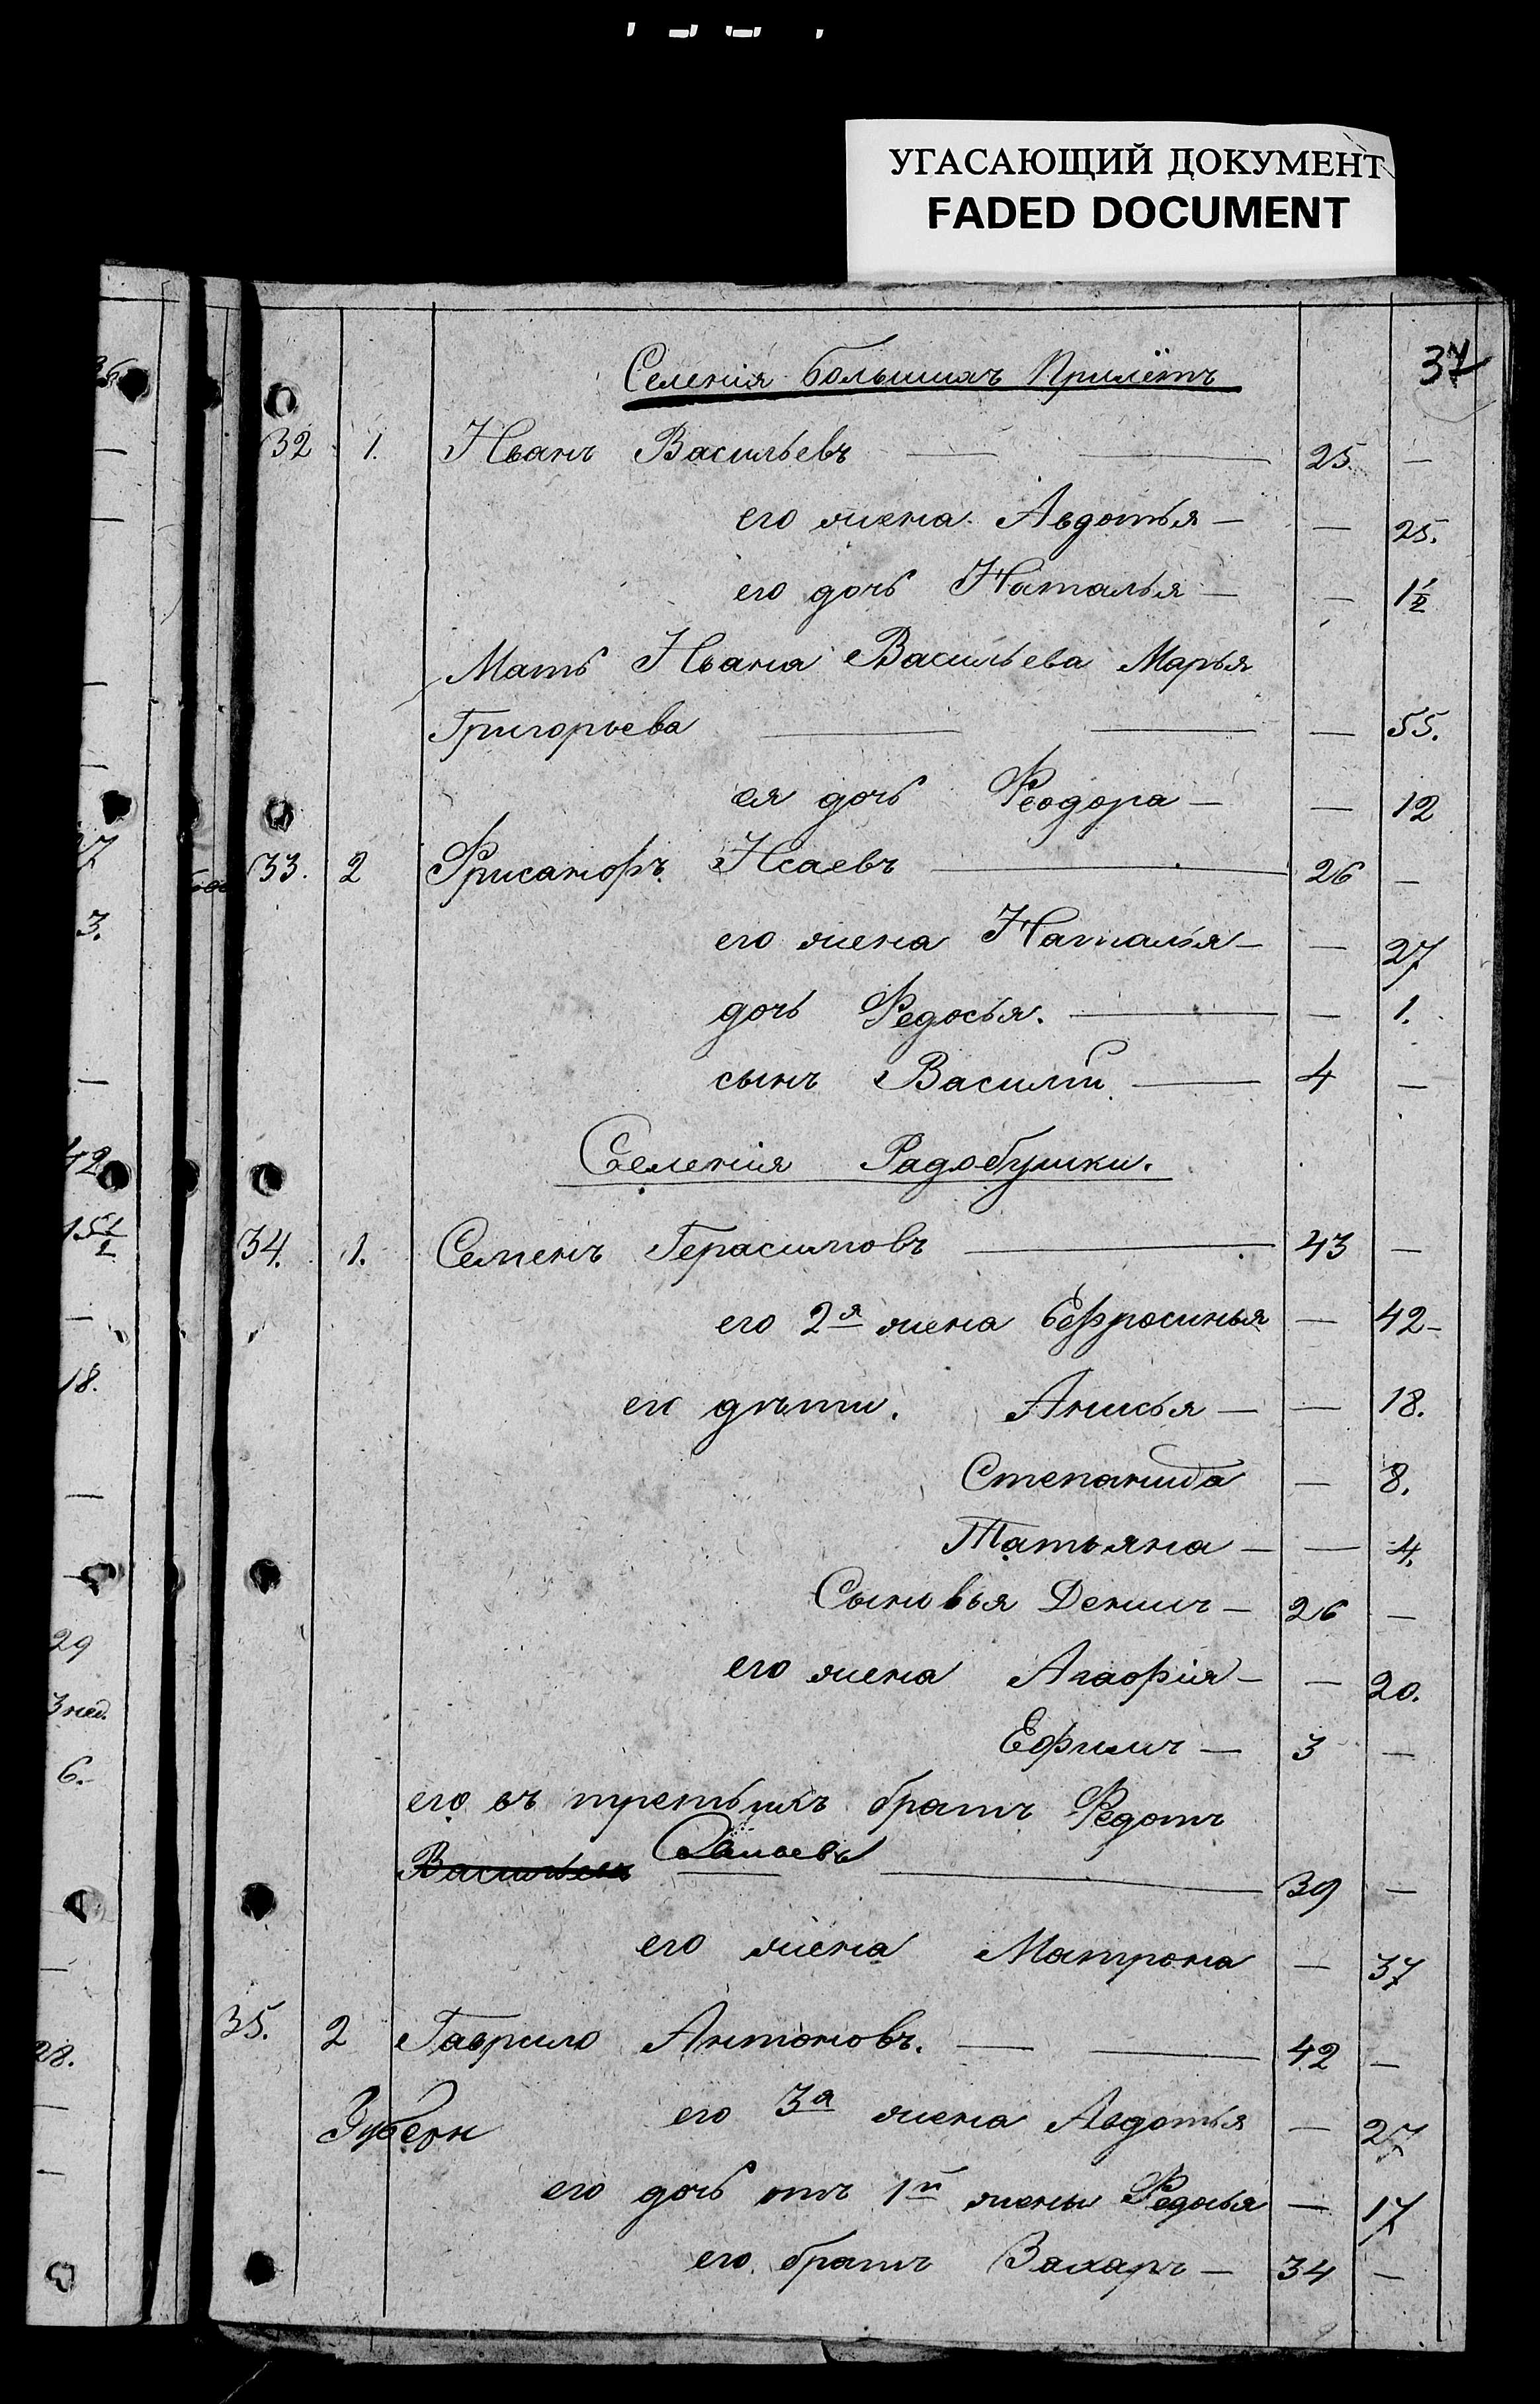 УГАСАЮЩИЙ ДОКУМЕНТ
FADED DOCUMENT
37
Селенія Большихъ Прилётъ
32 1. Иванъ Васильевъ — — 25 —
его жена Авдотья — — 25.
его дочь Наталья — — 1 1/2
Мать Ивана Васильева Марья
Григорьева — — — 55.
ея дочь Ѳеодора — — 12
33. 2 Хрисанфъ Исаевъ — 26 —
его жена Наталья — — 27
дочь Ѳедосья. — — 1.
сынъ Василій — 4 —
Селенія Радобушки.
34. 1. Семенъ Герасимовъ — 43 —
его 2я жена Ефросинья — 42 —
его дѣти. Анисья — — 18.
Степанида — 8.
Татьяна — — 4.
Сыновья Денисъ — 26 —
его жена Агафія — — 20.
Ефимъ — 3 —
его въ третьихъ братъ Ѳедотъ
Васильевъ — — 39 —
его жена Матрона — 37
35. 2 Гаврило Антоновъ. — — 42 —
его 3я жена Авдотья — 27
его дочь отъ 1й жены Ѳедосья — 17
его братъ Захаръ — 34 —
36
27
3.
42
15 1/2
18.
29
3 нед.
6.
28.